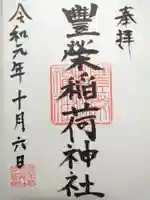 奉拝
豐榮稲荷神社
令和元年十月六日